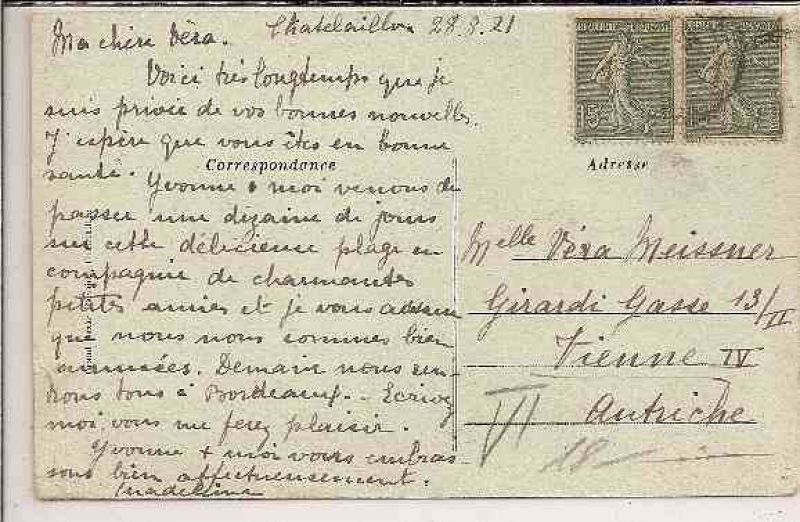 Chatelaillon 28.8.21
Ma chère Véra.
Voici très longtemps que je
suis privée de vos bonnes nouvelles.
J'espère que vous êtes en bonne
santé. Yvonne & moi venons de
passer une dizaine de jours
sur cette délicieuse plage en
compagnie de charmantes
petites amies et je vous assure
que nous nous sommes bien
amusées. Demain nous ren-
trons tous à Bordeaux. - Ecrivez
moi, vous me ferez plaisir.
Yvonne + moi vous embras-
sons bien affectueusement.
Madeleine
Correspondance
Adresse
15
Melle Véra Meissner
Girardi Gasse 13/II
Vienne IV
Autriche
VI
18